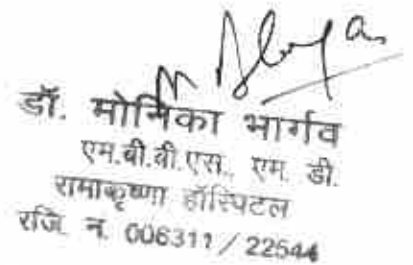 डॉ. मोनिका भार्गव
एम.बी.बी.एस., एम. डी.
रामाकृष्णा हॉस्पिटल
रजि. न. 006311 / 22544